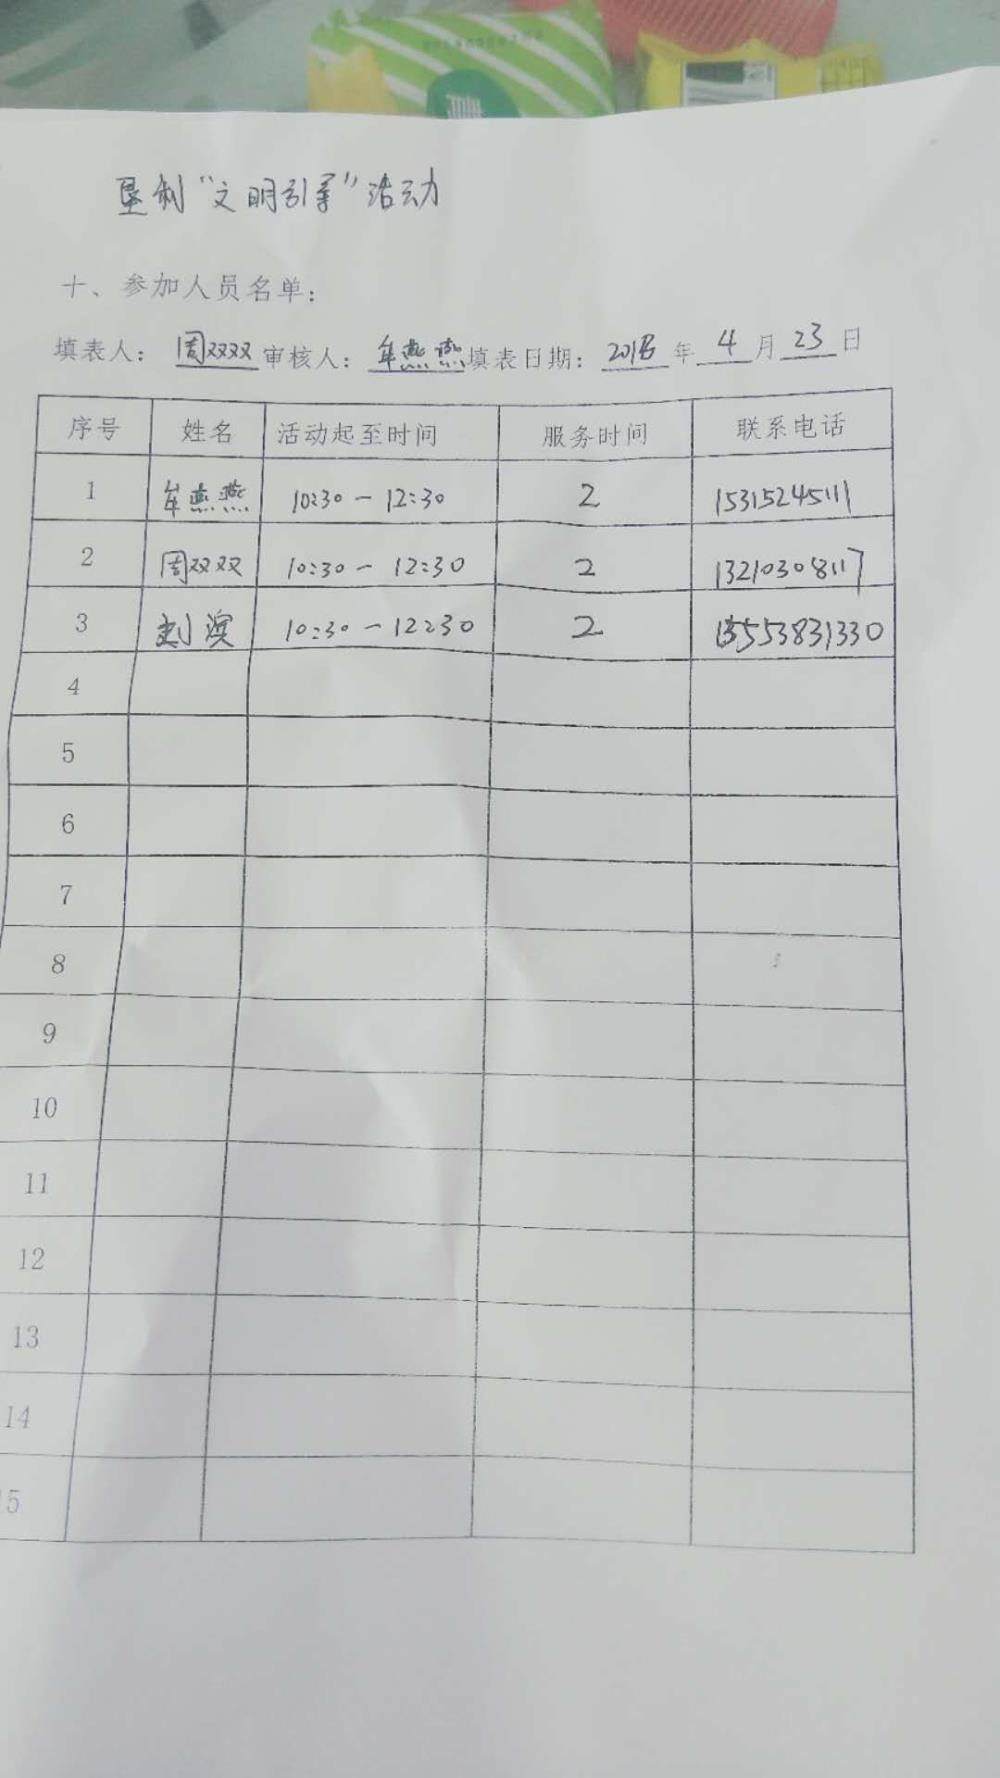 垦利“文明引导”活动
十、参加人员名单：
填表人：周双双 审核人：牟燕燕 填表日期：2018年 4 月 23 日
序号 姓名 活动起至时间 服务时间 联系电话
1 牟燕燕 10:30 — 12:30 2 15315245111
2 周双双 10:30 — 12:30 2 13210308117
3 刘滨 10:30 — 12:30 2 13553831330
4
5
6
7
8
9
10
11
12
13
14
15